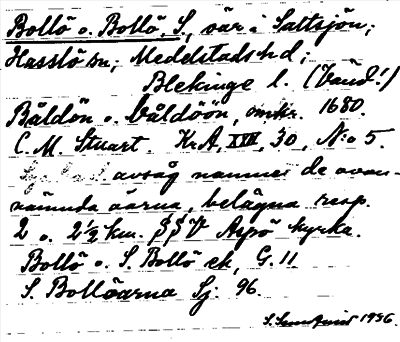 Bollö o. Bollö, S., öar i Saltsjön;
Hasslö sn; Medelstads hd;
Blekinge l. (Vänd!)
Båldön o. båldöön, omkr. 1680.
C. M. Stuart. KrA, XVII, 30, N:o 5.
avsåg namnet de ovan-
nämnda öarna, belägna resp.
2 o. 2½ km. Aspö kyrka.
Bollö o. S. Bollö ek, G. 11
S. Bollöarna Sj. 96.
1936.